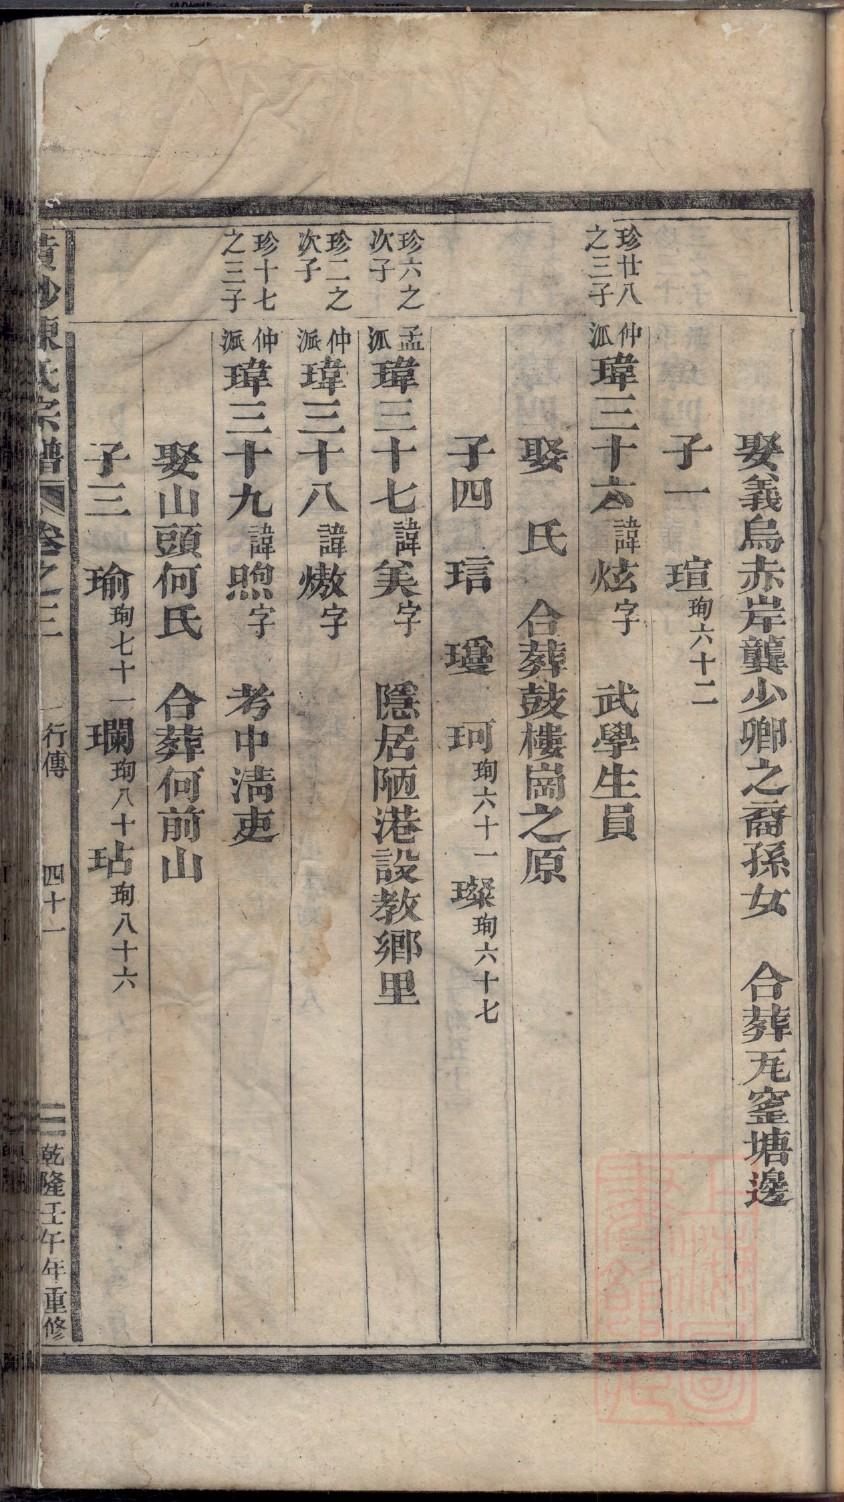 娶義烏赤岸龔少卿之裔孫女　合葬瓦窰塘邊
子一　瑄珣六十二
珍廿八之三子　仲派　瑋三十六諱炫字　武學生員
娶　氏　合葬鼓樓崗之原
子四　琂　瓊　珂珣六十一　璨珣六十七
珍六之次子　孟派　瑋三十七諱羙字　隱居陋港設教鄉里
珍二之次子　仲派　瑋三十八諱熾字
珍十七之三子　仲派　瑋三十九諱煦字　考中淸吏
娶山頭何氏　合葬何前山
子三　瑜珣七十一　瓓珣八十　玷珣八十六
黃沙陳氏宗譜　卷之三　行傳　四十一　乾隆壬午年重修
上海圖書館藏